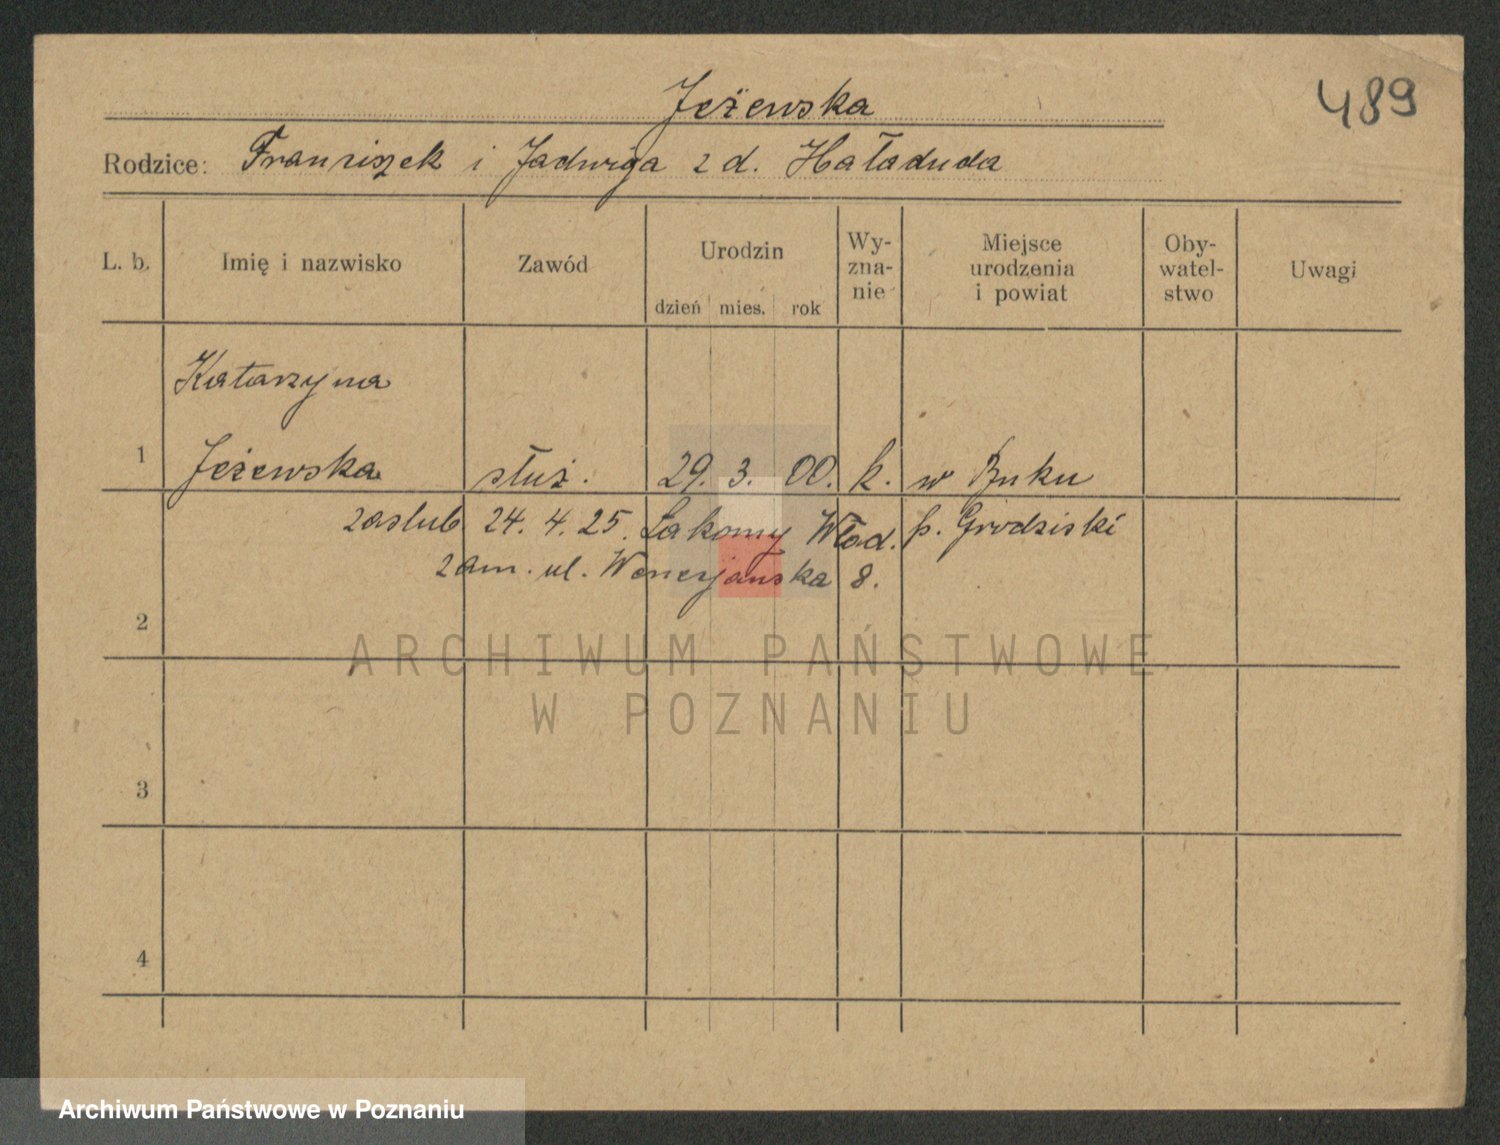 489
Jeżewska
Rodzice: Franciszek i Jadwiga z d. Haładuda
L. b. Imię i nazwisko Zawód Urodzin dzień mies. rok Wy-zna-nie Miejsce urodzenia i powiat Oby-watel-stwo Uwagi
Katarzyna
1 Jeżewska służ. 29. 3. 00. k. w Buku
zaslub 24. 4. 25. Łakomy Włod. p. Grodziski
zam. ul. Wenecjanska 8.
2
ARCHIWUM PAŃSTWOWE
W POZNANIU
3
4
Archiwum Państwowe w Poznaniu